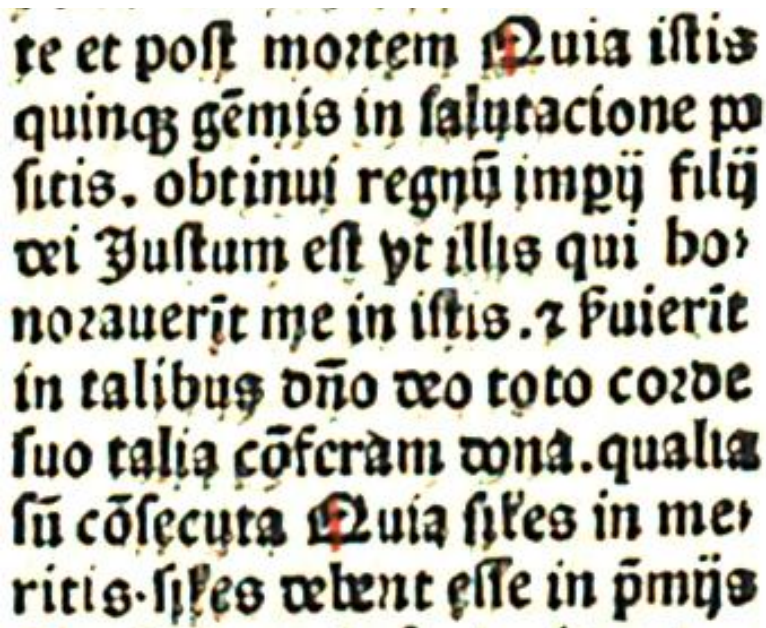 te et poſt moꝛtem Quia iſtis
quinqꝫ gēmis in ſalutacione po
ſitis. obtinui regnū impij filij
dei Juſtum eſt vt illis qui ho⸗
noꝛauerīt me in iſtis.⁊ ẜuierīt
in talibus dño deo toto coꝛde
ſuo talia cōferam dona.qualia
ſū cōſecuta Quia ſiłes in me⸗
ritis.ſiłes debent eſſe in p̄mijs